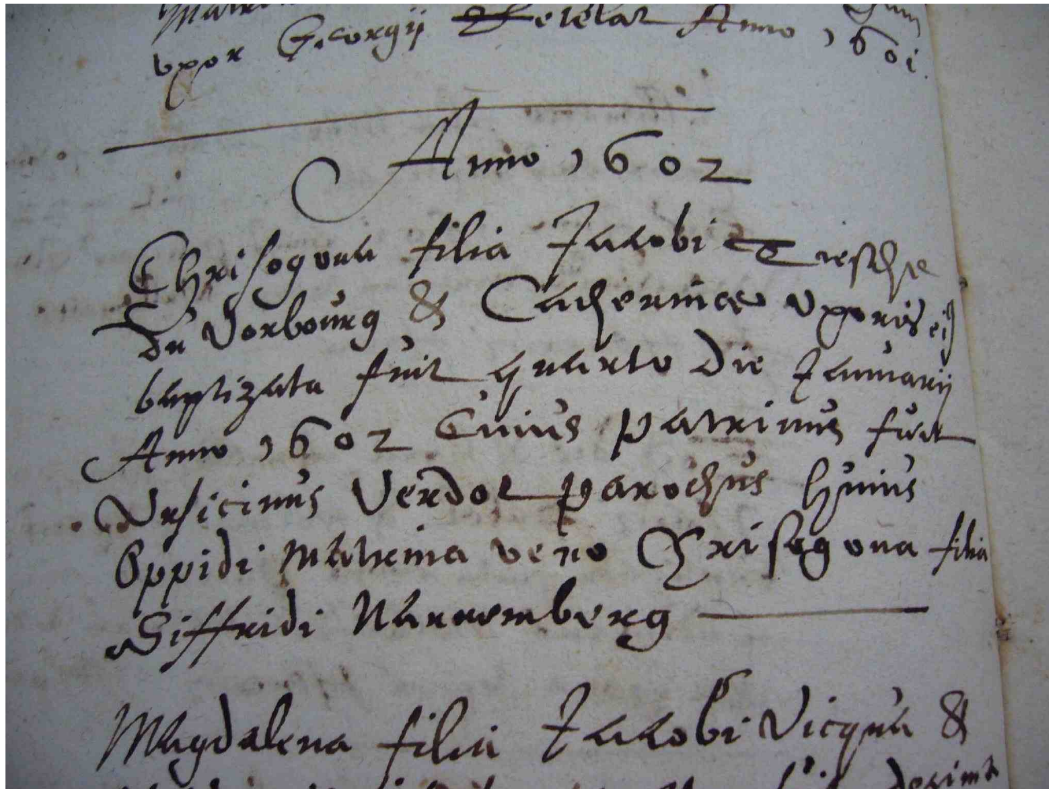 uxor Georgÿ Anno 1601.
Anno 1602
Chrisogona filia Jacobi Tiesche
du Vorbourg & Catherinae Uxoris eiꝰ
baptizata fuit quarto die Januarÿ
Anno 1602 Cuius patrinus fuit
Ursicinus Verdot parochus huius
Oppidi matrina vero Chrisogona filia
Siffridi Nannemberg
Magdalena filia Jacobi Vicqua &